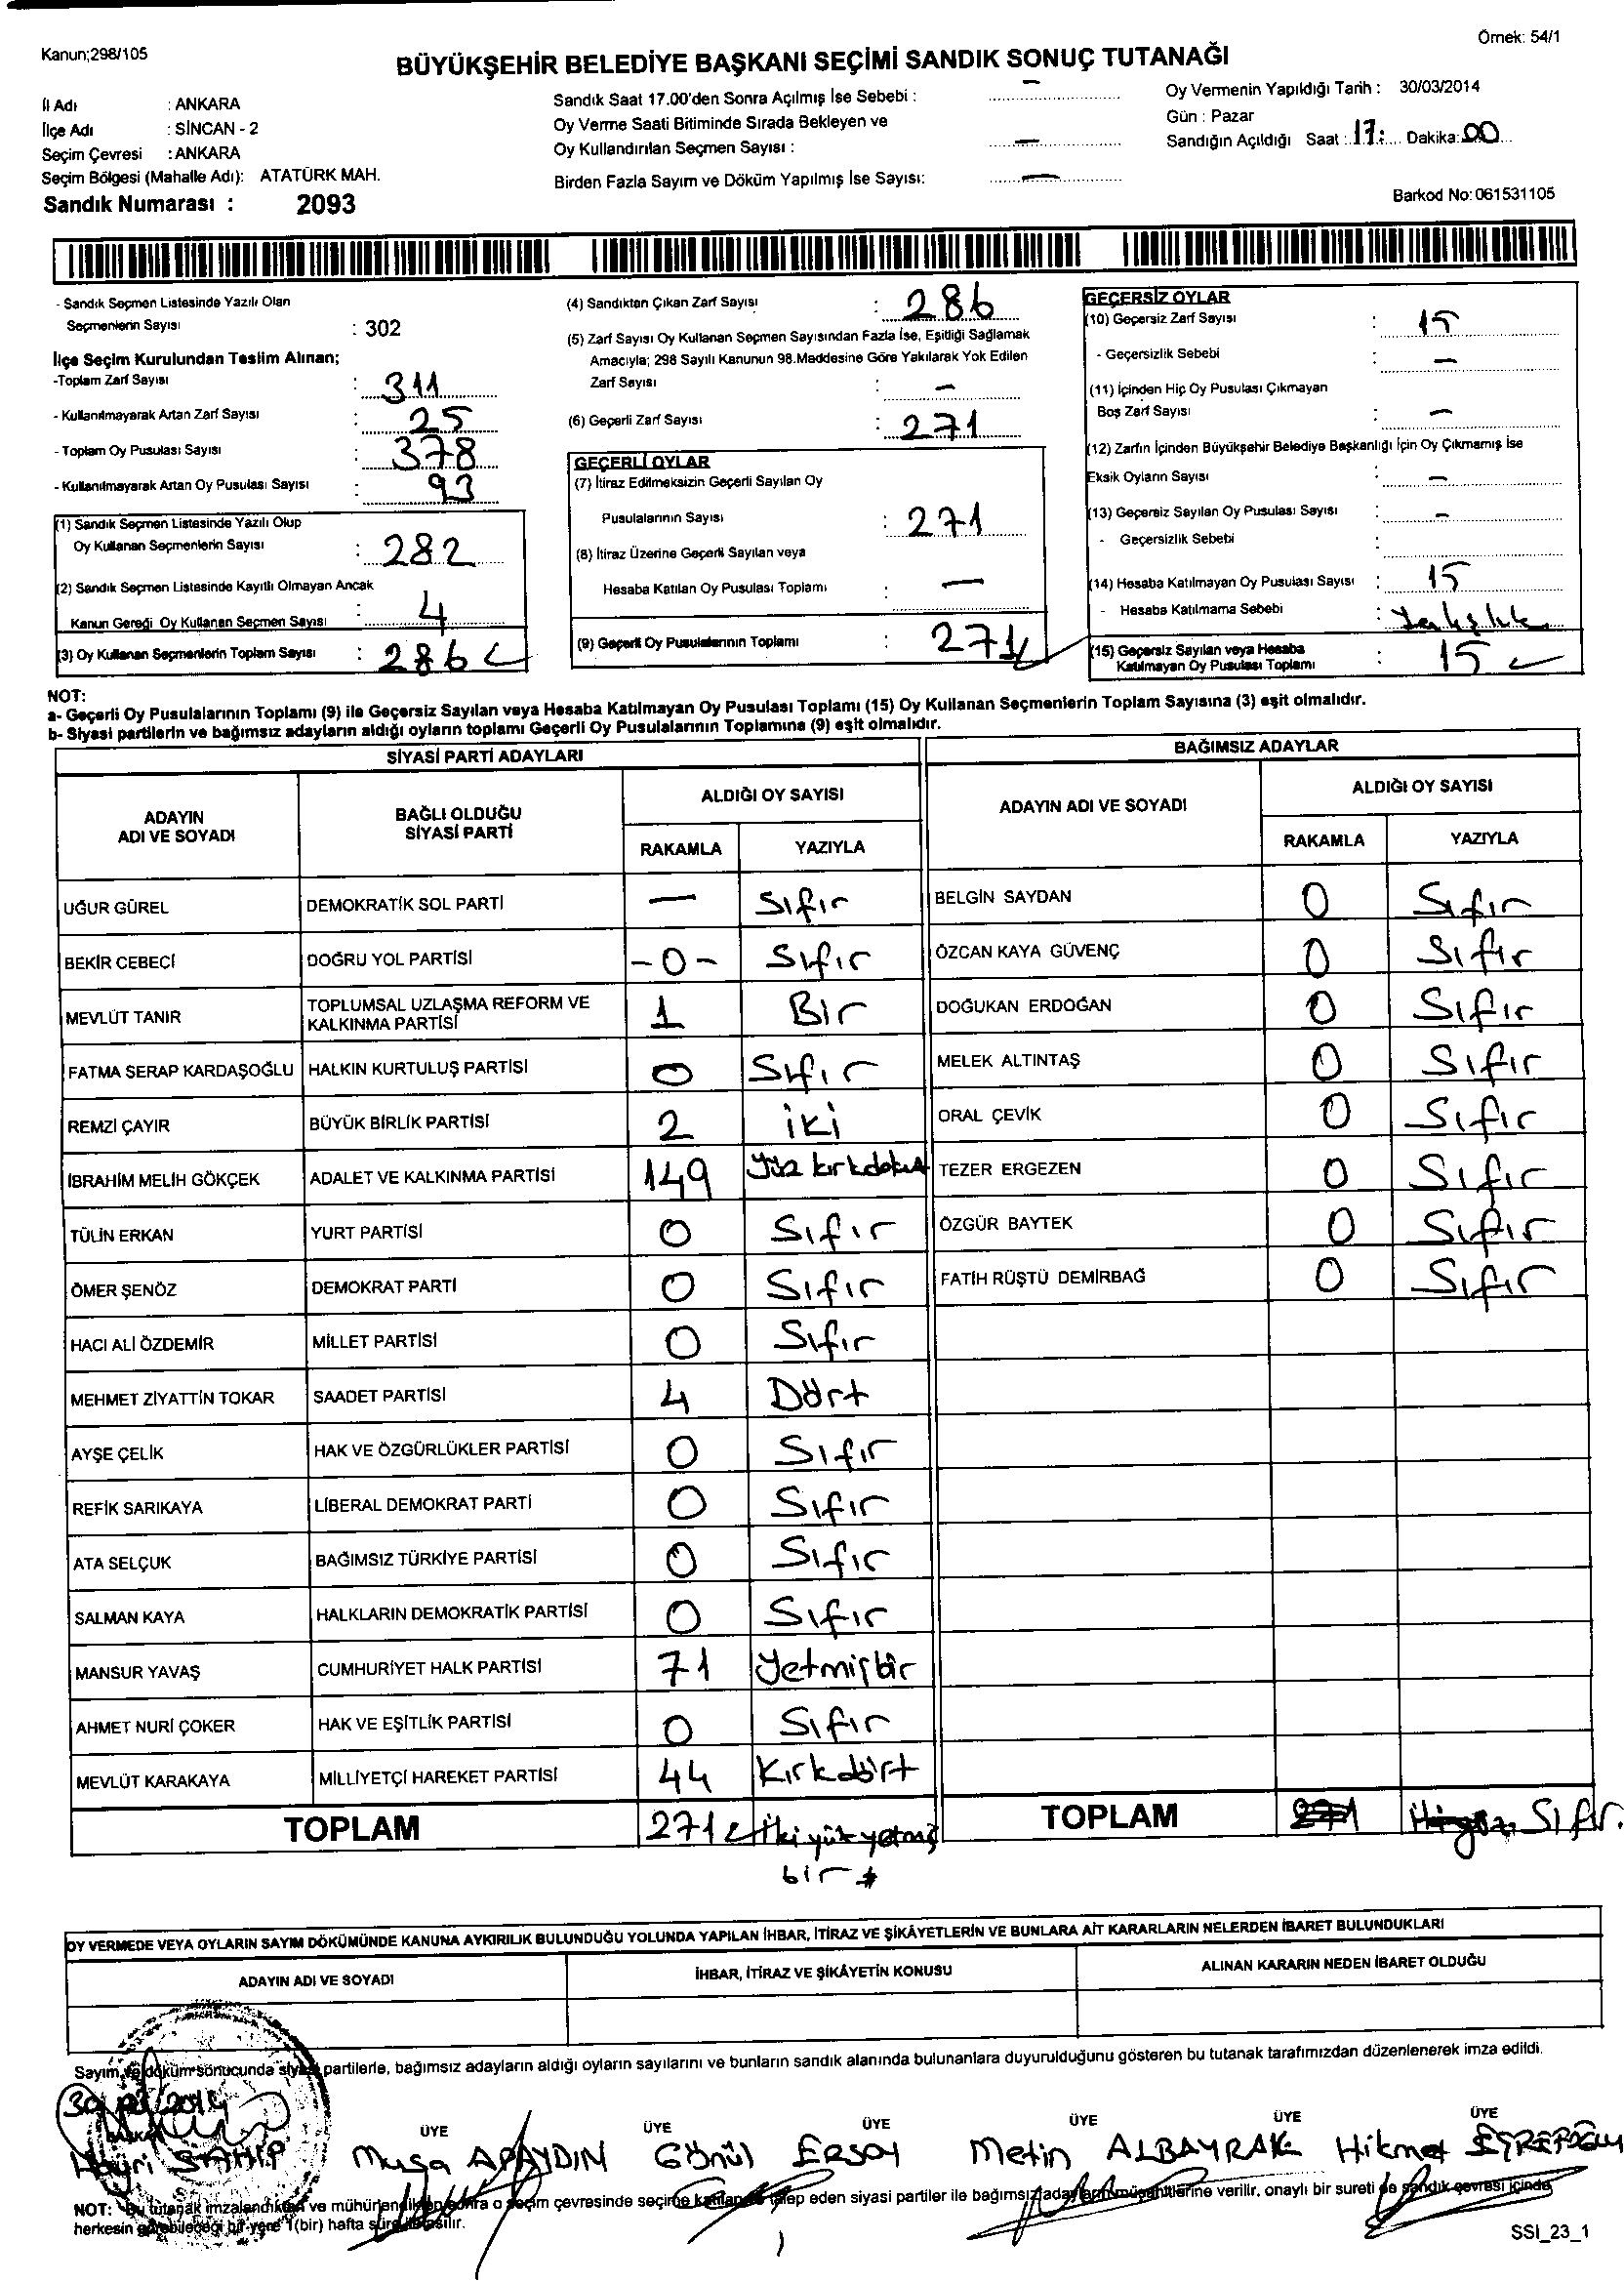 Kanun;298/105
Örnek: 54/1
BÜYÜKŞEHİR BELEDİYE BAŞKANI SEÇİMİ SANDIK SONUÇ TUTANAĞI
İl Adı : ANKARA
İlçe Adı : SİNCAN - 2
Seçim Çevresi : ANKARA
Seçim Bölgesi (Mahalle Adı): ATATÜRK MAH.
Sandık Numarası : 2093
Sandık Saat 17.00'den Sonra Açılmış İse Sebebi : –
Oy Verme Saati Bitiminde Sırada Bekleyen ve
Oy Kullandırılan Seçmen Sayısı : –
Birden Fazla Sayım ve Döküm Yapılmış İse Sayısı: –
Oy Vermenin Yapıldığı Tarih : 30/03/2014
Gün : Pazar
Sandığın Açıldığı Saat : 17: Dakika: 00
Barkod No: 061531105
- Sandık Seçmen Listesinde Yazılı Olan
Seçmenlerin Sayısı : 302
İlçe Seçim Kurulundan Teslim Alınan;
-Toplam Zarf Sayısı : 311
- Kullanılmayarak Artan Zarf Sayısı : 25
- Toplam Oy Pusulası Sayısı : 378
- Kullanılmayarak Artan Oy Pusulası Sayısı : 93
(1) Sandık Seçmen Listesinde Yazılı Olup
Oy Kullanan Seçmenlerin Sayısı : 282
(2) Sandık Seçmen Listesinde Kayıtlı Olmayan Ancak
Kanun Gereği Oy Kullanan Seçmen Sayısı : 4
(3) Oy Kullanan Seçmenlerin Toplam Sayısı : 286
(4) Sandıktan Çıkan Zarf Sayısı : 286
(5) Zarf Sayısı Oy Kullanan Seçmen Sayısından Fazla İse, Eşitliği Sağlamak
Amacıyla; 298 Sayılı Kanunun 98.Maddesine Göre Yakılarak Yok Edilen
Zarf Sayısı : –
(6) Geçerli Zarf Sayısı : 271
GEÇERLİ OYLAR
(7) İtiraz Edilmeksizin Geçerli Sayılan Oy
Pusulalarının Sayısı : 271
(8) İtiraz Üzerine Geçerli Sayılan veya
Hesaba Katılan Oy Pusulası Toplamı : –
(9) Geçerli Oy Pusulalarının Toplamı : 271
GEÇERSİZ OYLAR
(10) Geçersiz Zarf Sayısı : 15
- Geçersizlik Sebebi : –
(11) İçinden Hiç Oy Pusulası Çıkmayan
Boş Zarf Sayısı : –
(12) Zarfın İçinden Büyükşehir Belediye Başkanlığı İçin Oy Çıkmamış İse
Eksik Oyların Sayısı : –
(13) Geçersiz Sayılan Oy Pusulası Sayısı : –
- Geçersizlik Sebebi :
(14) Hesaba Katılmayan Oy Pusulası Sayısı : 15
- Hesaba Katılmama Sebebi :
(15) Geçersiz Sayılan veya Hesaba
Katılmayan Oy Pusulası Toplamı : 15
NOT:
a- Geçerli Oy Pusulalarının Toplamı (9) ile Geçersiz Sayılan veya Hesaba Katılmayan Oy Pusulası Toplamı (15) Oy Kullanan Seçmenlerin Toplam Sayısına (3) eşit olmalıdır.
b- Siyasi partilerin ve bağımsız adayların aldığı oyların toplamı Geçerli Oy Pusulalarının Toplamına (9) eşit olmalıdır.
SİYASİ PARTİ ADAYLARI
ADAYIN
ADI VE SOYADI
BAĞLI OLDUĞU
SİYASİ PARTİ
ALDIĞI OY SAYISI
RAKAMLA YAZIYLA
UĞUR GÜREL DEMOKRATİK SOL PARTİ — Sıfır
BEKİR CEBECİ DOĞRU YOL PARTİSİ -0- Sıfır
MEVLÜT TANIR TOPLUMSAL UZLAŞMA REFORM VE
KALKINMA PARTİSİ 1 Bir
FATMA SERAP KARDAŞOĞLU HALKIN KURTULUŞ PARTİSİ 0 Sıfır
REMZİ ÇAYIR BÜYÜK BİRLİK PARTİSİ 2 iki
İBRAHİM MELİH GÖKÇEK ADALET VE KALKINMA PARTİSİ 149 Yüz kırkdokuz
TÜLİN ERKAN YURT PARTİSİ 0 Sıfır
ÖMER ŞENÖZ DEMOKRAT PARTİ 0 Sıfır
HACI ALİ ÖZDEMİR MİLLET PARTİSİ 0 Sıfır
MEHMET ZİYATTİN TOKAR SAADET PARTİSİ 4 Dört
AYŞE ÇELİK HAK VE ÖZGÜRLÜKLER PARTİSİ 0 Sıfır
REFİK SARIKAYA LİBERAL DEMOKRAT PARTİ 0 Sıfır
ATA SELÇUK BAĞIMSIZ TÜRKİYE PARTİSİ 0 Sıfır
SALMAN KAYA HALKLARIN DEMOKRATİK PARTİSİ 0 Sıfır
MANSUR YAVAŞ CUMHURİYET HALK PARTİSİ 71 Yetmişbir
AHMET NURİ ÇOKER HAK VE EŞİTLİK PARTİSİ 0 Sıfır
MEVLÜT KARAKAYA MİLLİYETÇİ HAREKET PARTİSİ 44 Kırkdört
TOPLAM 271 İkiyüz yetmiş
bir
BAĞIMSIZ ADAYLAR
ADAYIN ADI VE SOYADI
ALDIĞI OY SAYISI
RAKAMLA YAZIYLA
BELGİN SAYDAN 0 Sıfır
ÖZCAN KAYA GÜVENÇ 0 Sıfır
DOĞUKAN ERDOĞAN 0 Sıfır
MELEK ALTINTAŞ 0 Sıfır
ORAL ÇEVİK 0 Sıfır
TEZER ERGEZEN 0 Sıfır
ÖZGÜR BAYTEK 0 Sıfır
FATİH RÜŞTÜ DEMİRBAĞ 0 Sıfır
TOPLAM 271 Sıfır.
OY VERMEDE VEYA OYLARIN SAYIM DÖKÜMÜNDE KANUNA AYKIRILIK BULUNDUĞU YOLUNDA YAPILAN İHBAR, İTİRAZ VE ŞİKÂYETLERİN VE BUNLARA AİT KARARLARIN NELERDEN İBARET BULUNDUKLARI
ADAYIN ADI VE SOYADI İHBAR, İTİRAZ VE ŞİKÂYETİN KONUSU ALINAN KARARIN NEDEN İBARET OLDUĞU
Sayım ve döküm sonucunda siyasi partilerle, bağımsız adayların aldığı oyların sayılarını ve bunların sandık alanında bulunanlara duyurulduğunu gösteren bu tutanak tarafımızdan düzenlenerek imza edildi.
ÜYE ÜYE ÜYE ÜYE ÜYE ÜYE
Musa APAYDIN Gönül ERSOY Metin ALBAYRAK Hikmet
NOT: Bu tutanak imzalandıktan ve mühürlendikten sonra o seçim çevresinde seçime katılan ve talep eden siyasi partiler ile bağımsız adayların müşahitlerine verilir, onaylı bir sureti de sandık çevresi içinde
herkesin görebileceği bir yere 1(bir) hafta süre ile asılır.
SSI_23_1